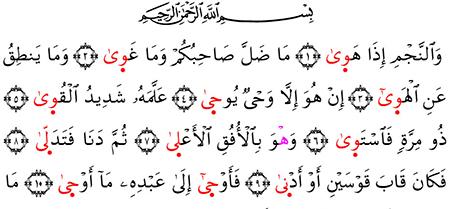 بِسْمِ اللَّهِ الرَّحْمَٰنِ الرَّحِيمِ
وَالنَّجْمِ إِذَا هَوَىٰ ﴿١﴾ مَا ضَلَّ صَاحِبُكُمْ وَمَا غَوَىٰ ﴿٢﴾ وَمَا يَنطِقُ
عَنِ الْهَوَىٰٓ ﴿٣﴾ إِنْ هُوَ إِلَّا وَحْىٌ يُوحَىٰ ﴿٤﴾ عَلَّمَهُۥ شَدِيدُ الْقُوَىٰ ﴿٥﴾
ذُو مِرَّةٍ فَاسْتَوَىٰ ﴿٦﴾ وَهُوَ بِالْأُفُقِ الْأَعْلَىٰ ﴿٧﴾ ثُمَّ دَنَا فَتَدَلَّىٰ ﴿٨﴾
فَكَانَ قَابَ قَوْسَيْنِ أَوْ أَدْنَىٰ ﴿٩﴾ فَأَوْحَىٰٓ إِلَىٰ عَبْدِهِۦ مَآ أَوْحَىٰ ﴿١٠﴾ مَا